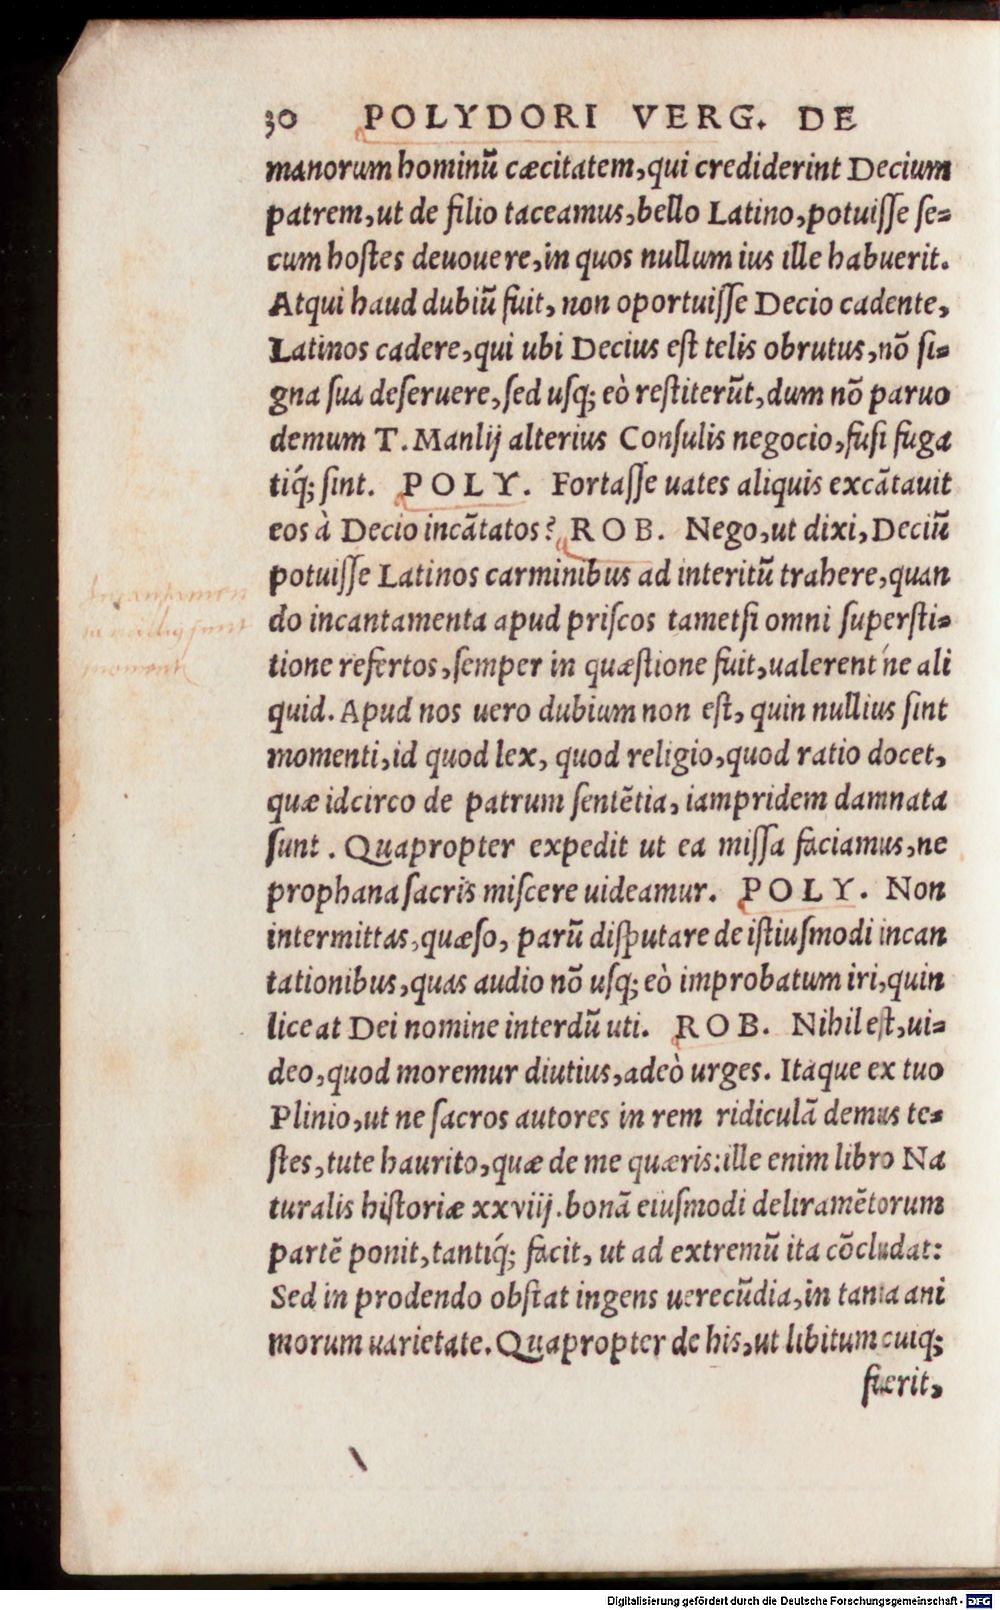 30 POLYDORI VERG. DE
manorum hominū cæcitatem, qui crediderint Decium
patrem, ut de filio taceamus, bello Latino, potuiſſe ſe=
cum hoſtes deuouere, in quos nullum ius ille habuerit.
Atqui haud dubiū fuit, non oportuiſſe Decio cadente,
Latinos cadere, qui ubi Decius eſt telis obrutus, nō ſi=
gna ſua deſeruere, ſed uſq; eò reſtiterūt, dum nō paruo
demum T. Manlij alterius Conſulis negocio, fuſi fuga
tiq́; ſint. POLY. Fortaſſe uates aliquis excātauit
eos à Decio incātatos? ROB. Nego, ut dixi, Deciū
potuiſſe Latinos carminibus ad interitū trahere, quan
do incantamenta apud priſcos tametſi omni ſuperſti=
tione refertos, ſemper in quæſtione fuit, ualerent ne ali
quid. Apud nos uero dubium non eſt, quin nullius ſint
momenti, id quod lex, quod religio, quod ratio docet,
quæ idcirco de patrum ſentētia, iampridem damnata
ſunt. Quapropter expedit ut ea miſſa faciamus, ne
prophana ſacris miſcere uideamur. POLY. Non
intermittas, quæſo, parū diſputare de iſtiuſmodi incan
tationibus, quas audio nō uſq; eò improbatum iri, quin
liceat Dei nomine interdū uti. ROB. Nihil eſt, ui=
deo, quod moremur diutius, adeò urges. Itaque ex tuo
Plinio, ut ne ſacros autores in rem ridiculā demus te=
ſtes, tute haurito, quæ de me quæris: ille enim libro Na
turalis hiſtoriæ xxviij. bonā eiuſmodi deliramētorum
partē ponit, tantiq́; facit, ut ad extremū ita cōcludat:
Sed in prodendo obſtat ingens uerecūdia, in tanta ani
morum uarietate. Quapropter de his, ut libitum cuiq;
fuerit,
momenti
Digitalisierung gefördert durch die Deutsche Forschungsgemeinschaft - DFG